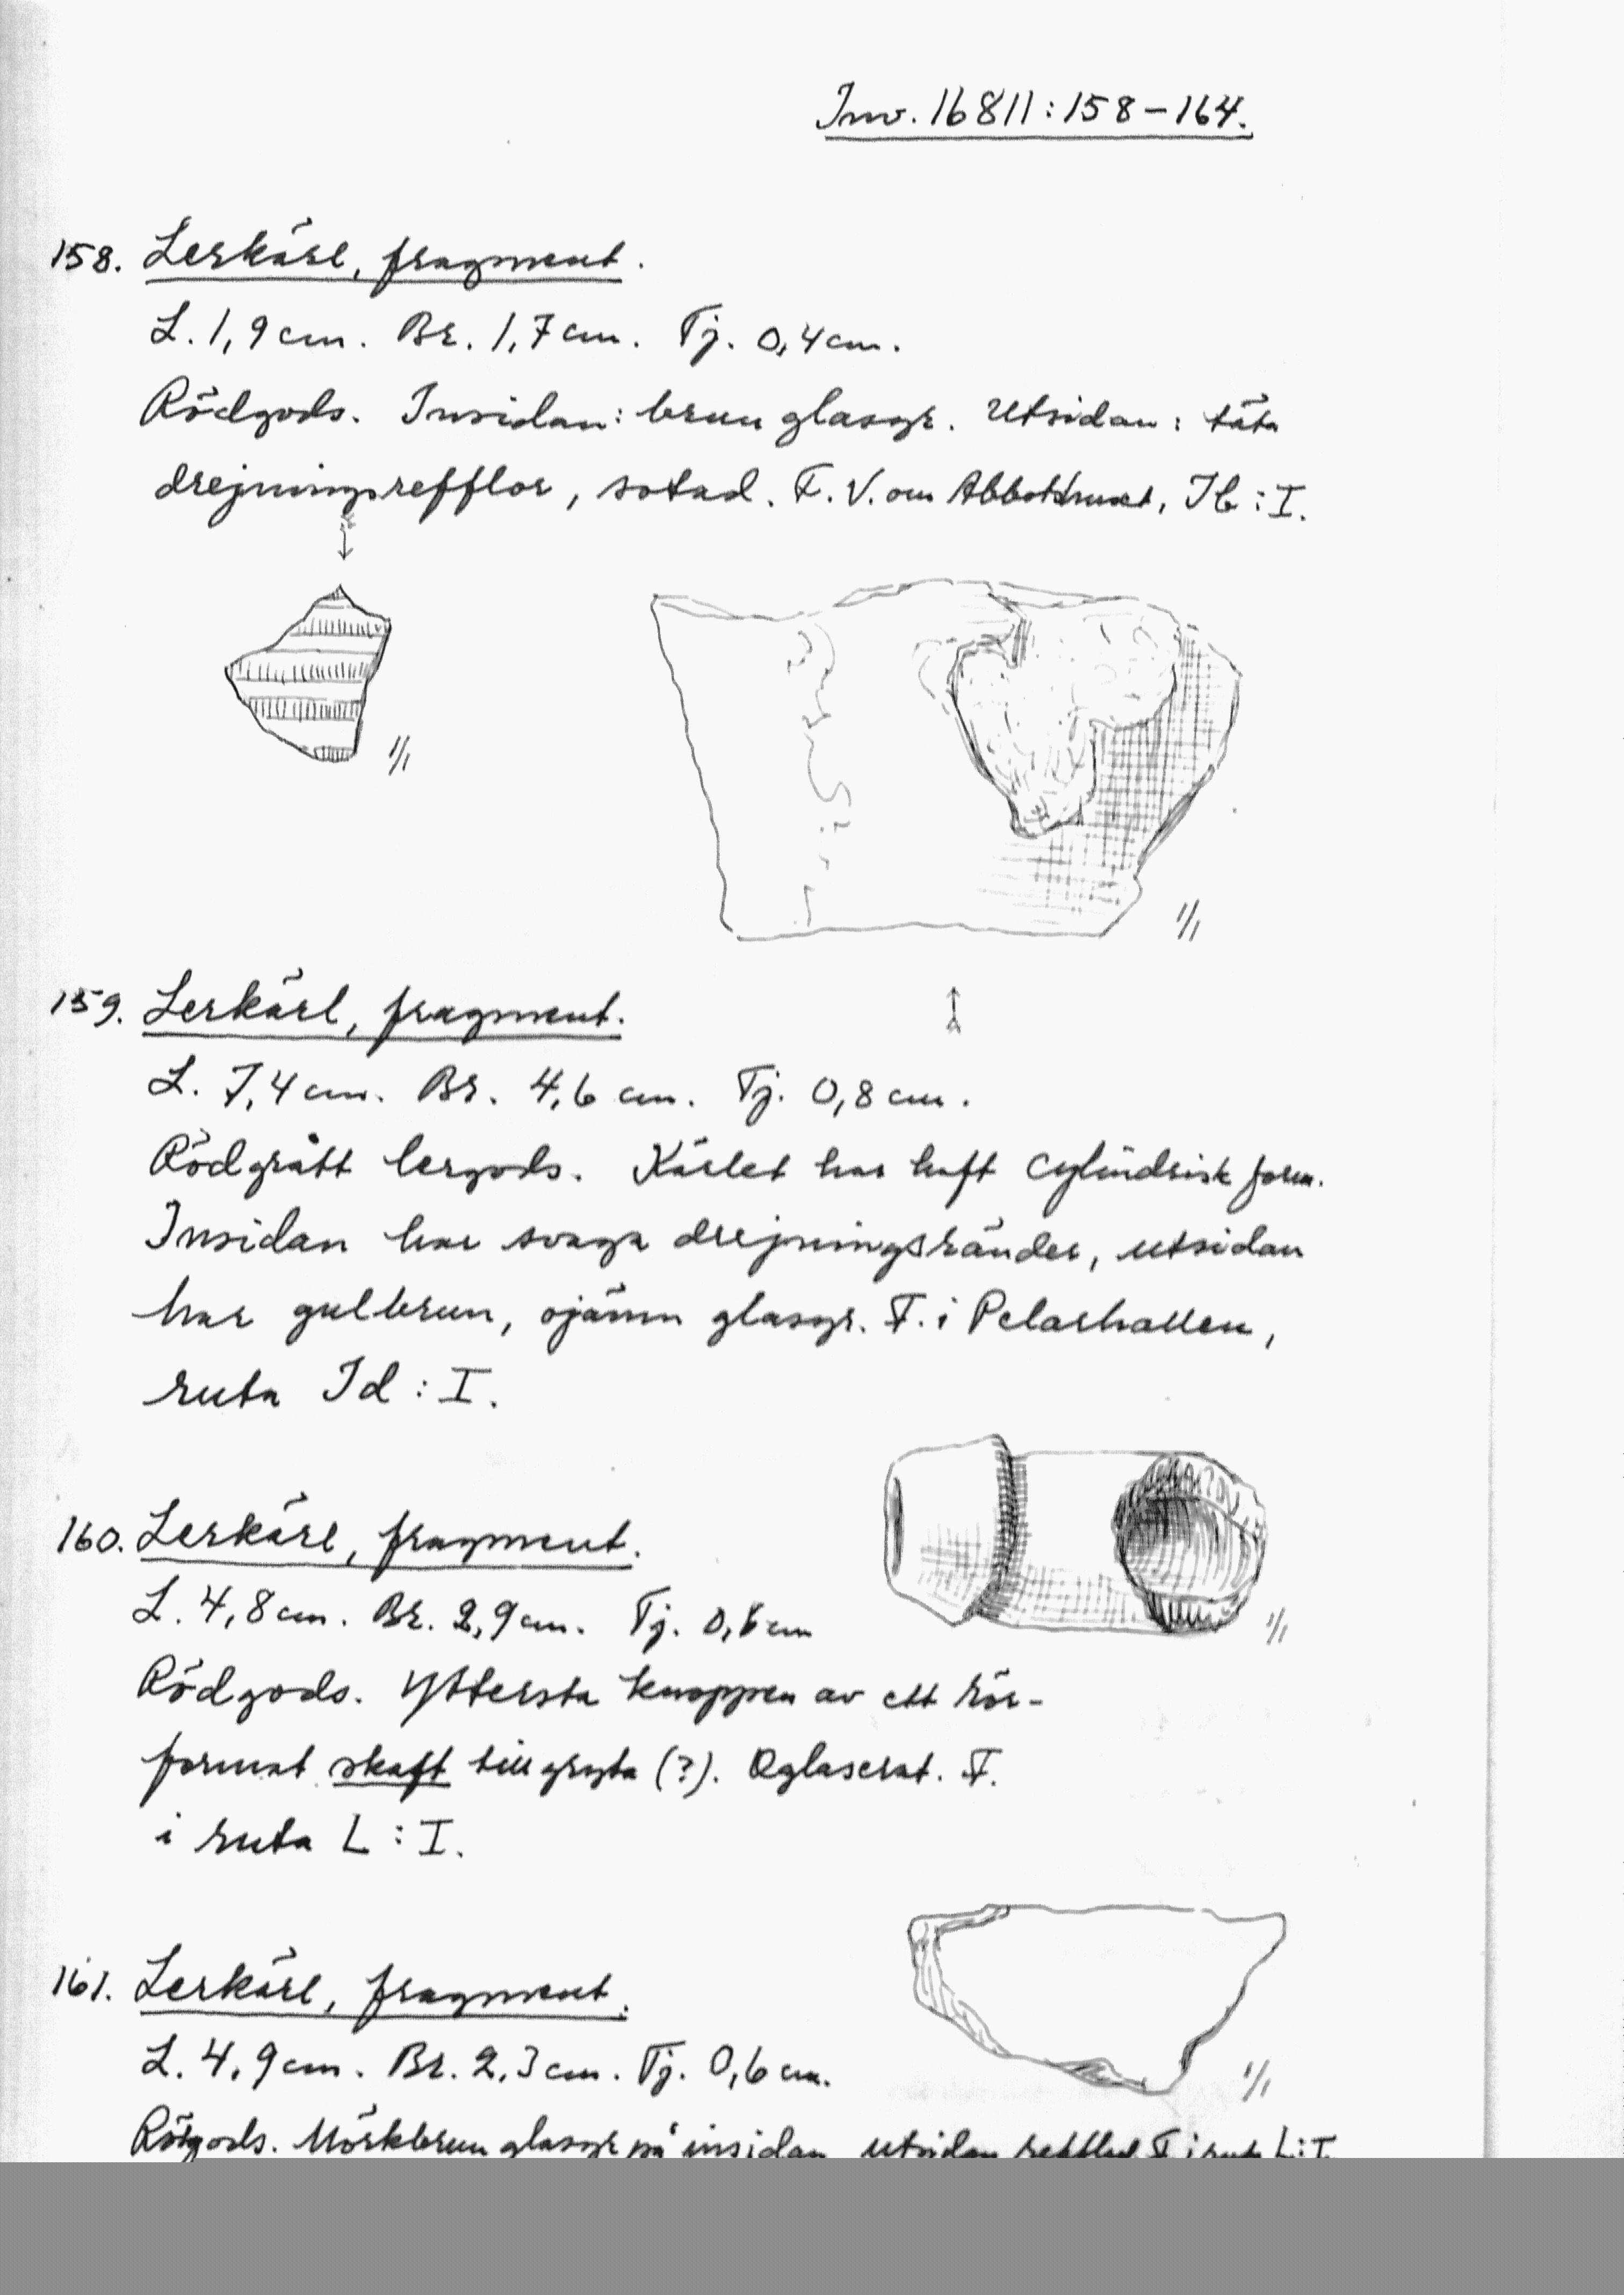 Inv. 16811:158-164.
158. Lerkärl, fragment.
L. 1,9 cm. Br. 1,7 cm. Tj. 0,4 cm.
Rödgods. Insidan: brun glasyr. Utsidan: täta
drejningsrefflor, sotad. F. V. om Abbotshuset, Ib:I.
1/1
1/1
159. Lerkärl, fragment.
L. 7,4 cm. Br. 4,6 cm. Tj. 0,8 cm.
Rödgrått lergods. Kärlet har haft cylindrisk form.
Insidan har svaga drejningsränder, utsidan
har gulbrun, ojämn glasyr. F. i Pelarhallen,
ruta Id:I.
160. Lerkärl, fragment.
L. 4,8 cm. Br. 2,9 cm. Tj. 0,6 cm
1/1
Rödgods. Yttersta knoppen av ett rör-
format skaft till gryta (?). Oglaserat. F.
i ruta L:I.
161. Lerkärl, fragment.
L. 4,9 cm. Br. 2,3 cm. Tj. 0,6 cm.
1/1
Rödgods. Mörkbrun glasyr på insidan utsidan refflad F i ruta L:I.